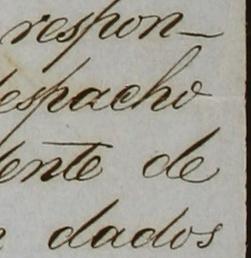 respon-
espacho
ente de
dados